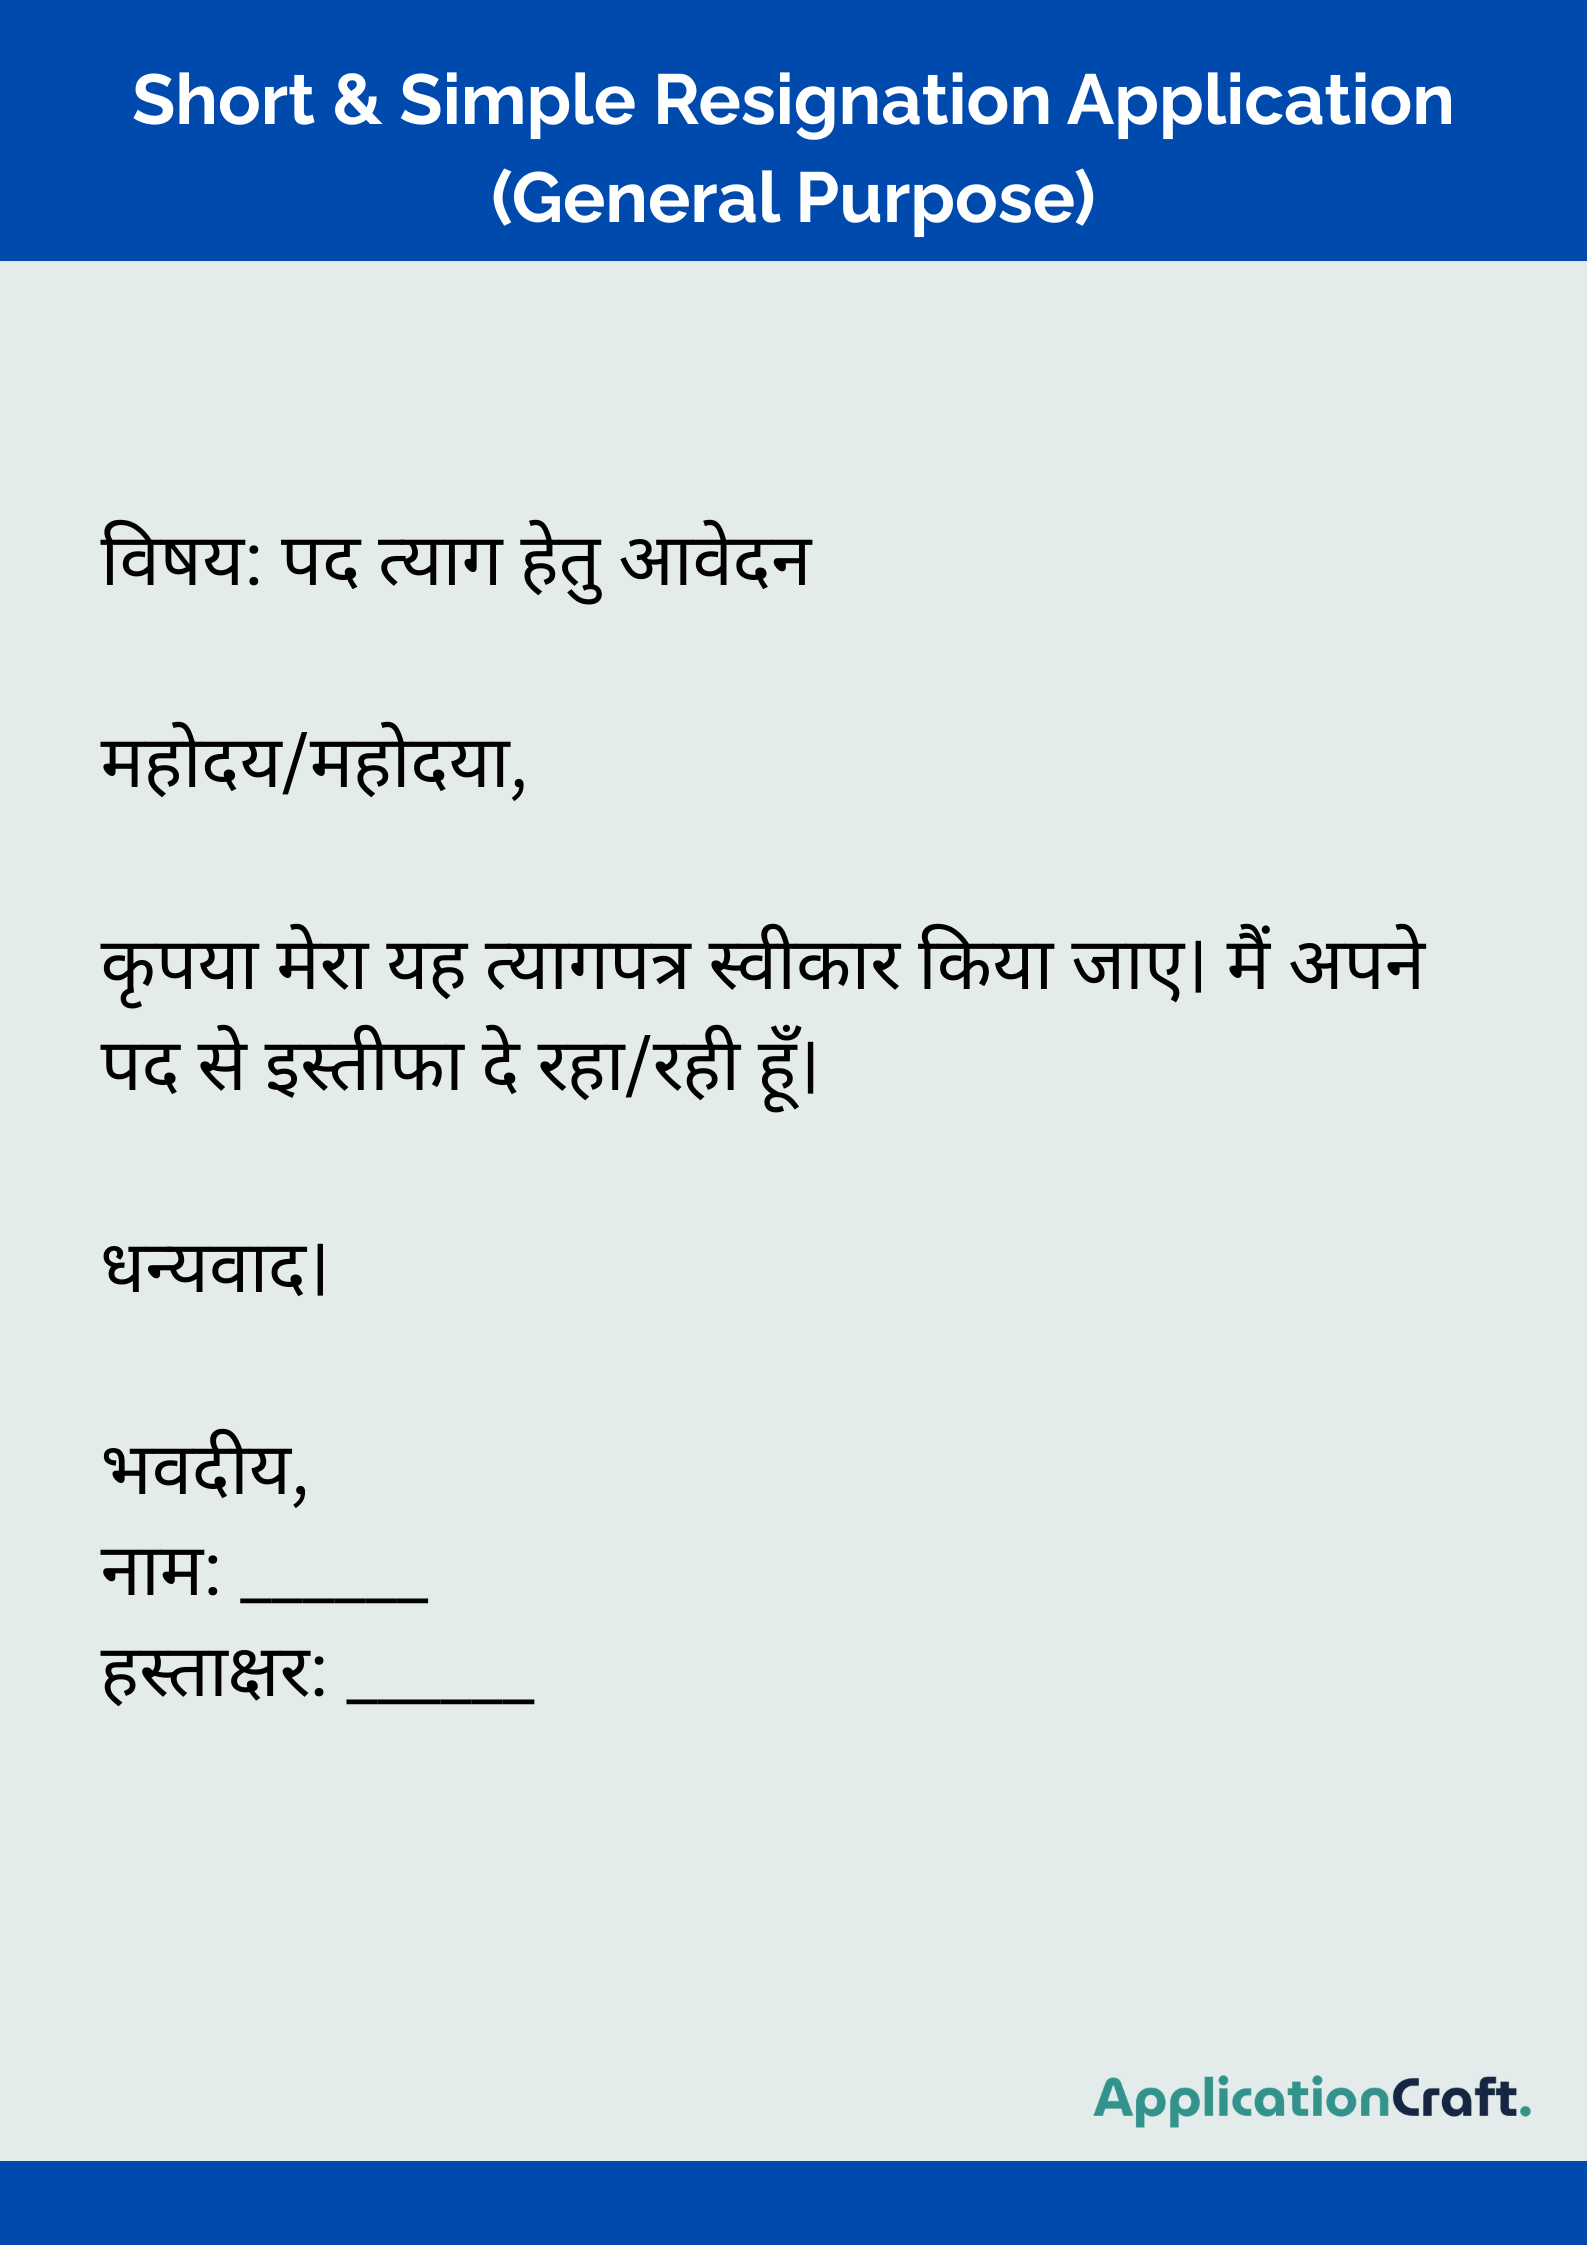 Short & Simple Resignation Application
(General Purpose)
विषय: पद त्याग हेतु आवेदन
महोदय/महोदया,
कृपया मेरा यह त्यागपत्र स्वीकार किया जाए। मैं अपने
पद से इस्तीफा दे रहा/रही हूँ।
धन्यवाद।
भवदीय,
नाम: ______
हस्ताक्षर: ______
ApplicationCraft.